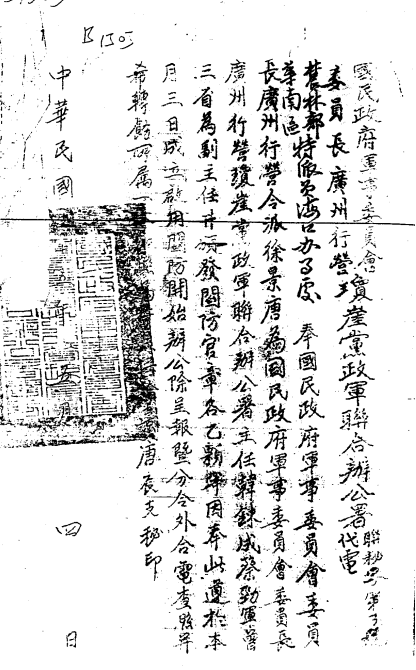 B 1303
國民政府軍事委員會
委員長廣州行營瓊崖黨政軍聯合辦公署代電
聯秘字第 號
農林部特派員海口办事處
華南區
奉國民政府軍事委員會委員
長廣州行營令派徐景唐為國民政府軍事委員會委員長
廣州行營瓊崖黨政軍聯合辦公署主任韓鍊成蔡勁軍曾
三省為副主任并頒發關防官章各乙顆等因奉此遵於本
月三日成立啟用關防開始辦公除呈報暨分令外合電查照并
希轉飭所属一
唐辰支秘印
中華民國 年五月四日